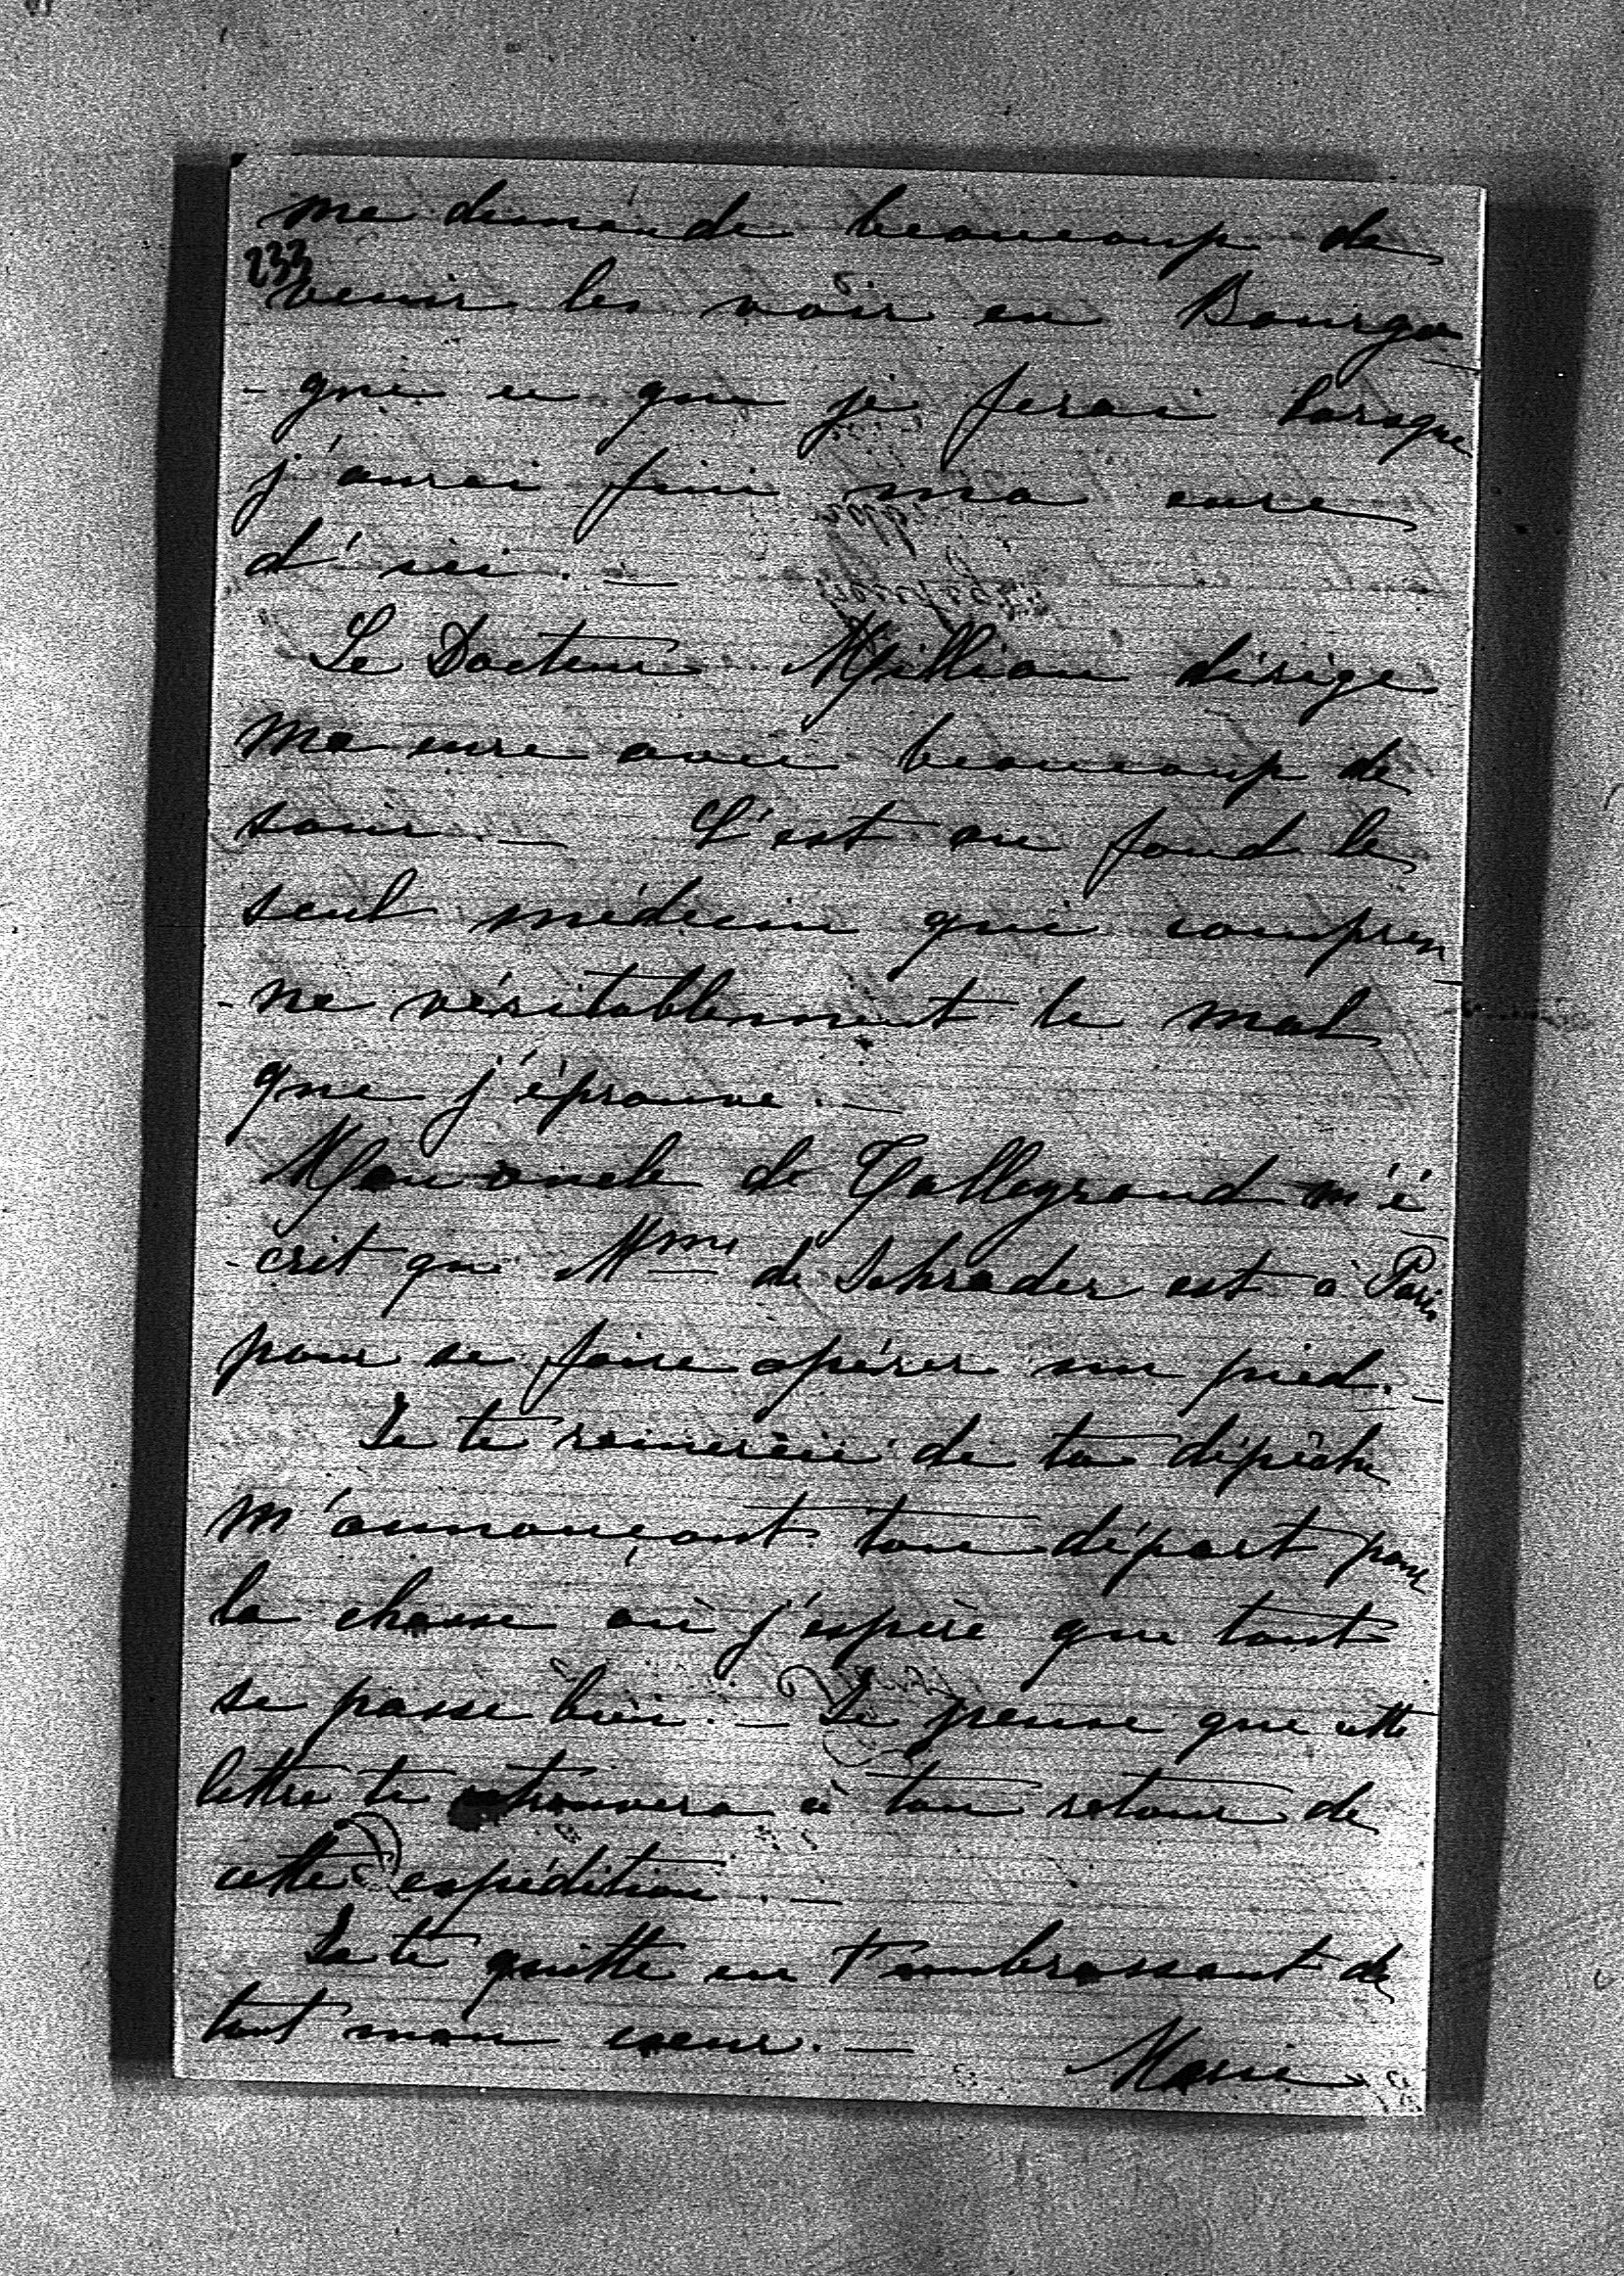 me demande beaucoup de
233
venir les voir en Bourgo
- gne ce que je ferai lorsque
j'aurai fini ma cure
d'ici. —
Le Docteur Million dirige
ma cure avec beaucoup de
soin. — C'est au fond le
seul médecin qui compren
- ne véritablement le mal
que j'éprouve. —
Mon oncle de Talleyrand m'é
- crit que Mme de Schrader est à Paris
pour se faire opérer un pied. —
Je te remercie de ta dépêche
m'annonçant ton départ pour
la chasse où j'espère que tout
se passe bien. — Je pense que cette
lettre te retrouvera à ton retour de
cette expédition. —
Je te quitte en t'embrassant de
tout mon coeur. — Marie